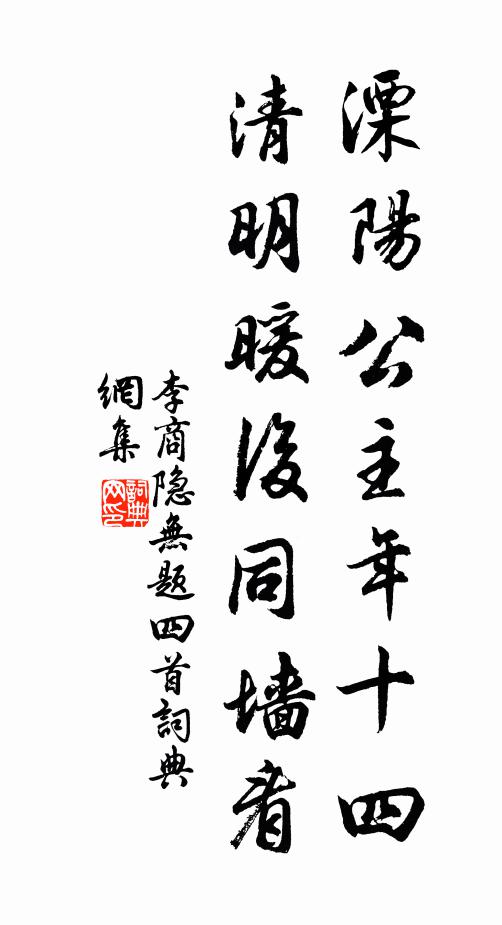 溧陽公主年十四
清明暖後同墙看
李商隐無題四首詞典
網集
詞典
网印